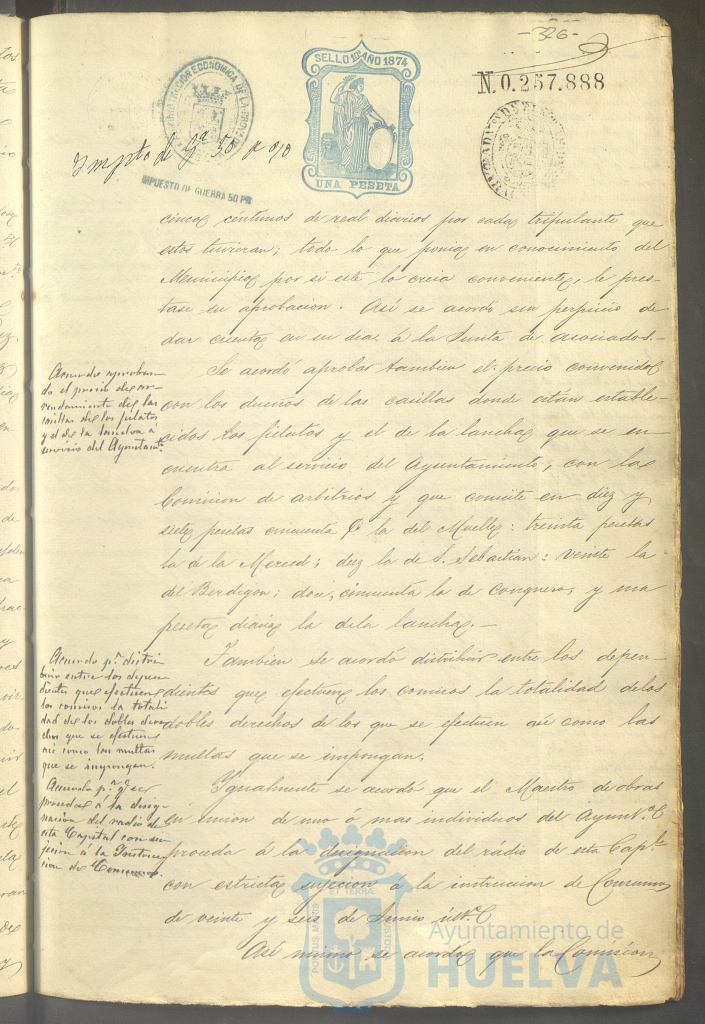 -326-
SELLO 10º AÑO 1874
UNA PESETA
N.0.257.888
ADMINISTRACION ECONOMICA DE LA PROV
IMPUESTO DE GUERRA 50 P%
Impto de Gª 50 p 0/0
cinco céntimos de real diarios por cada tripulante que
estos tuvieran; todo lo que ponia en conocimiento del
Municipio por si este lo creia conveniente, le pres-
tase su aprobacion. Así se acordó sin perjuicio de
dar cuenta en su dia á la Junta de asociados.-
Acuerdo aproban-
do el precio del ar-
rendamiento de las
casillas de los fielatos
y el de la lancha á
servicio del Ayuntamto
Se acordó aprobar tambien el precio convenido
con los dueños de las casillas donde están estable-
cidos los fielatos y el de la lancha que se en-
cuentra al servicio del Ayuntamiento, con la
Comision de arbitrios y que consiste en diez y
siete pesetas cincuenta la del Muelle: treinta pesetas
la de la Merced; diez la de S. Sebastian: veinte la
del Berdigon; doce, cincuenta la de Conquero, y una
peseta diaria la de la lancha.-
Acuerdo pª distri
buir entre los depen
dientes que efectuen
los comisos la totali
dad de los dobles dere
chos que se efectuen
así como las multas
que se impongan.
Tambien se acordó distribuir entre los depen-
dientes que efectuen los comisos la totalidad de los
dobles derechos de los que se efectuen así como las
multas que se impongan.
Acuerdo pª q. se
proceda á la desig-
nacion del radio de
esta Capital con su
jecion á la Instruc
cion de Consumos.
Ygualmente se acordó que el Maestro de obras
en union de uno ó mas individuos del Ayuntº
proceda á la designacion del rádio de esta Capl
con estricta sujecion á la instruccion de Consumos
de veinte y seis de Junio últº
Así mismo se acordó que la Comision
PORTUS MARIS
ET TERRAE
CUSTODIA
Ayuntamiento de
HUELVA